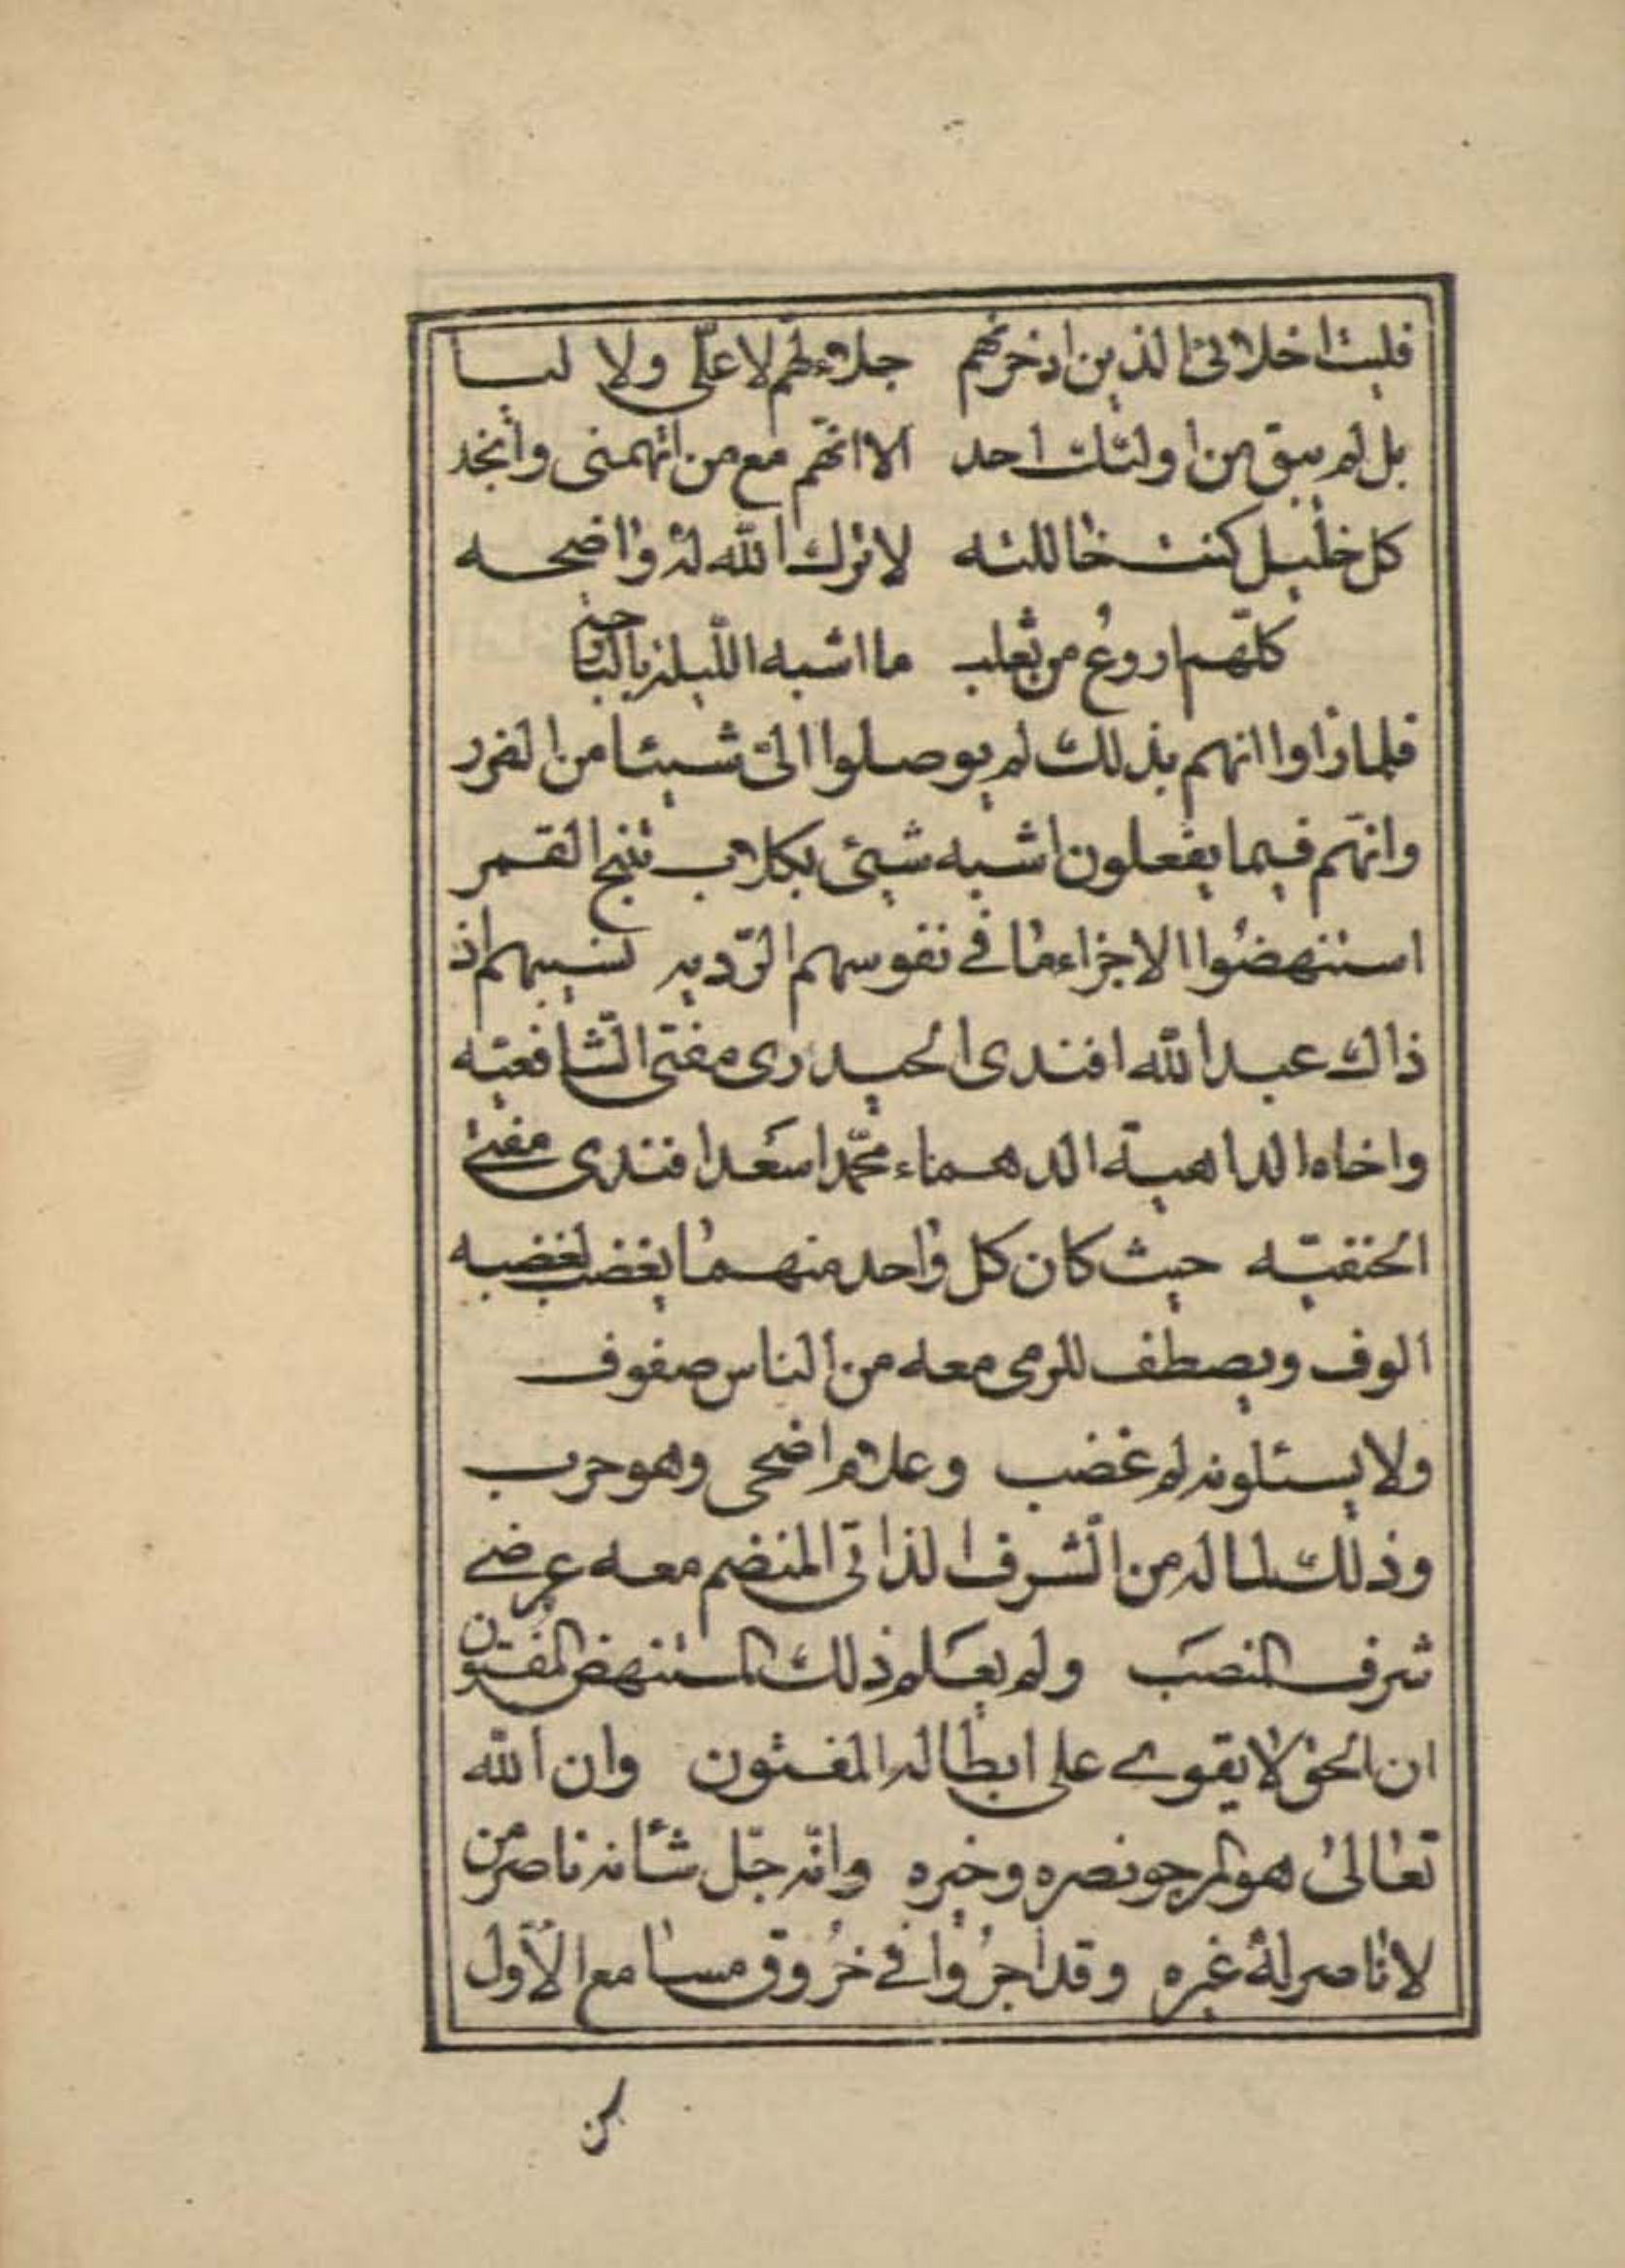 فليت اخلائى الذين ادخرتهم جلاءلهم لا علّى ولا ليا
بل لم يبق من اولئك احد الا انهّم مع من اتهمنى وانجد
كل خليل كنت خاللته لا ترك الله له واضحه
كلّهم اروغ من ثعلب ما اشبه الليلة بالبارحه
فلما رٔاوا انهم بذلك لم يوصلوا الىّ شيئا من الضرر
وانهّم فيما يفعلون اشبه شيئ بكلاب تنبح القمر
استنهضوا لاجراء ما فى نفوسهم الرّديه نسيبهم اذ
ذاك عبد الله افندى الحيدرى مفتى الشّافعيّه
واخاه الداهيّة الدهماء محمّد اسعد افندى مفتى
الحنفيّه حيث كان كل واحد منهما يغضب لغضبه
الوف ويصطف للرمى معه من الناس صفوف
ولا يسئلونه لم غضب وعلام اضحى وهو حرب
وذلك لما له من الشّرف الذاتى المنضم معه عرضى
شرف المنصب ولم يعلم ذلك المستنهض المفتون
ان الحق لا يقوى على ابطاله المفتون وان الله
تعالى هو المرجو نصره وخيره وانّه جلّ شأنه ناصر من
لا ناصر له غيره وقد اجرُوا فى خرُوق مسامع الاوّل